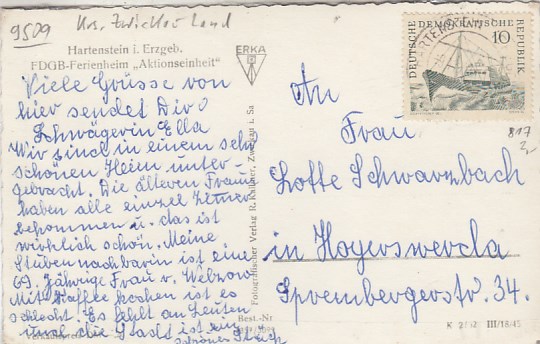 9509 Krs. Zwickau Land
Hartenstein i. Erzgeb.
FDGB-Ferienheim „Aktionseinheit"
ERKA
DEUTSCHE DEMOKRATISCHE REPUBLIK
10
HARTENSTEIN
Viele Grüsse von
hier sendet Dir
Schwägerin Ella
Wir sind in einem sehr
schönen Heim unter-
gebracht. Die älteren Frauen
haben alle einzel Zimmer
bekommen u. das ist
wirklich schön. Meine
Stubennachbarin ist eine
69. Jährige Frau v. Welzow
Mit Kaffee kochen ist es
schlecht. Es fehlt an Leuten
und die Stadt ist ein
schöner Strich
An
Frau
Lotte Schwarzbach
in Hoyerswerda
Sprembergerstr. 34.
817
2,-
Fotografischer Verlag R. Kallmer, Zwickau i. Sa
Best.-Nr
Verkaufspreis
K 2 III/18/45